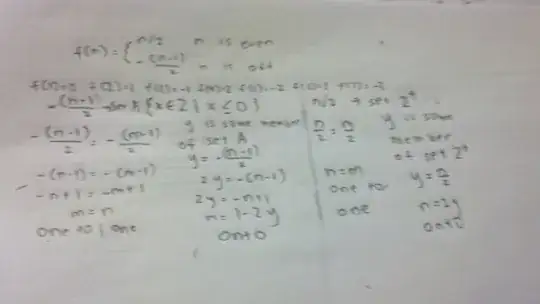 f(n) = { n/2 n is even
-(n-1)/2 n is odd
f(1)=0 f(2)=1 f(3)=-1 f(4)=2 f(5)=-2 f(6)=3 f(7)=-3
-(n-1)/2 → set A {x∈Z | x ≤ 0}
-(n-1)/2 = -(m-1)/2
-(n-1) = -(m-1)
-n+1 = -m+1
m=n
one to one
y is some member
of set A
y = -(n-1)/2
2y = -(n-1)
2y = -n+1
n = 1-2y
onto
n/2 → set Z⁺
n/2 = m/2
n=m
one to
one
y is some
member
of set Z⁺
y = n/2
n=2y
onto